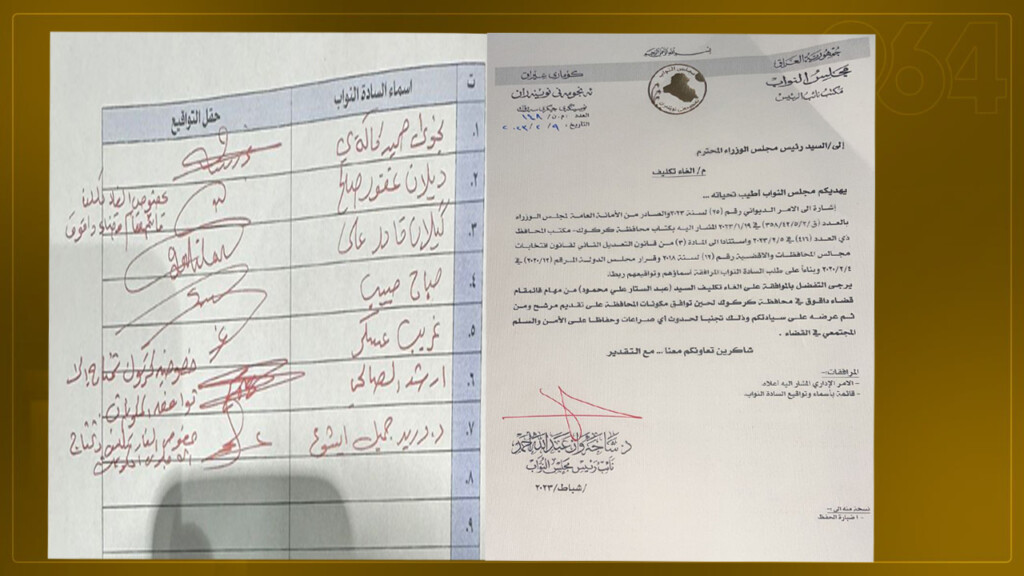 964
بسم الله الرحمن الرحيم
جمهورية العراق
مجلس النواب
مكتب نائب الرئيس
كۆماری عێراق
ئەنجومەنی نوێنەران
العدد: م.ن/ ١٦٨
التاريخ: ٢٠٢٣/٢/٩
إلى/السيد رئيس مجلس الوزراء المحترم
م/ الغاء تكليف
يهديكم مجلس النواب أطيب تحياته ...
إشارة الى الامر الديواني رقم (٢٥) لسنة ٢٠٢٣ والصادر من الأمانة العامة لمجلس الوزراء
بالعدد (ق/٣٥٨/٤٢/٥/٢) في ٢٠٢٣/١/٢٩ المشار اليه بكتاب محافظة كركوك- مكتب المحافظ
ذي العدد (٤١٦) في ٢٠٢٣/٢/٥ واستنادا الى المادة (٣) من قانون التعديل الثاني لقانون انتخابات
مجالس المحافظات والاقضية رقم (١٢) لسنة ٢٠١٨ وقرار مجلس الدولة المرقم (٢٠٢٠/١٢) في
٢٠٢٠/٢/٤ وبناءً على طلب السادة النواب المرافقة اسماؤهم وتواقيعهم ربطا.
يرجى التفضل بالموافقة على الغاء تكليف السيد (عبد الستار علي محمود) من مهام قائممقام
قضاء داقوق في محافظة كركوك لحين توافق مكونات المحافظة على تقديم مرشح ومن
ثم عرضه على سيادتكم وذلك تجنبا لحدوث أي صراعات وحفاظا على الأمن والسلم
المجتمعي في القضاء .
شاكرين تعاونكم معنا ... مع التقدير
المرافقات:-
- الامر الإداري المشار اليه أعلاه.
- قائمة بأسماء وتواقيع السادة النواب.
د. شاخەوان عبدالله احمد
نائب رئيس مجلس النواب
/شباط/ ٢٠٢٣
نسخة منه إلى:-
- اضبارة الحفظ
ت اسماء السادة النواب حقل التواقيع
١. نجوى حميد كاكەيي
٢. ديلان غفور صالح
بخصوص الغاء تكليف
قائم مقام قضاء داقوق
٣. گيلان قادر علي
٤. صباح حبيب
٥. غريب عسكر
٦. ارشد الصالحي
خصوصية كركوك تحتاج الى
توافقه المكونات
٧. د. دريد جميل ايشوع
بخصوص الغاء تكليف
٨.
٩.